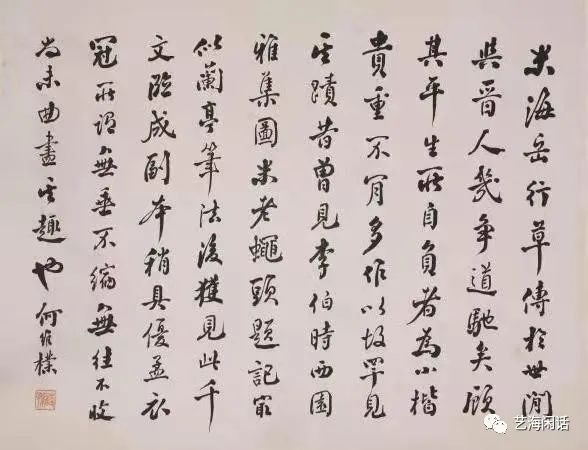 米海岳行草傳於世間
與晉人幾爭道馳矣顧
其平生所自負者為小楷
貴重不肎多作以故罕見
其蹟昔曾見李伯時西園
雅集圖米老蠅頭題記㝡
似蘭亭筆法後獲見此千
文臨成副本稍具優孟衣
冠所謂無垂不縮無往不收
尚未曲盡其趣也 何維樸
艺海闲话